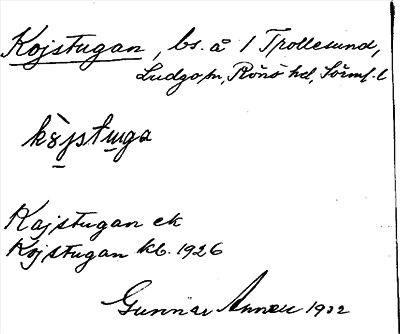 Kojstugan, bs. å 1 Trollesund,
Ludgo sn, Rönö hd, Sörml. l
kòjstuga
Kajstugan ek
Kojstugan kb. 1926
Gunnar 1932